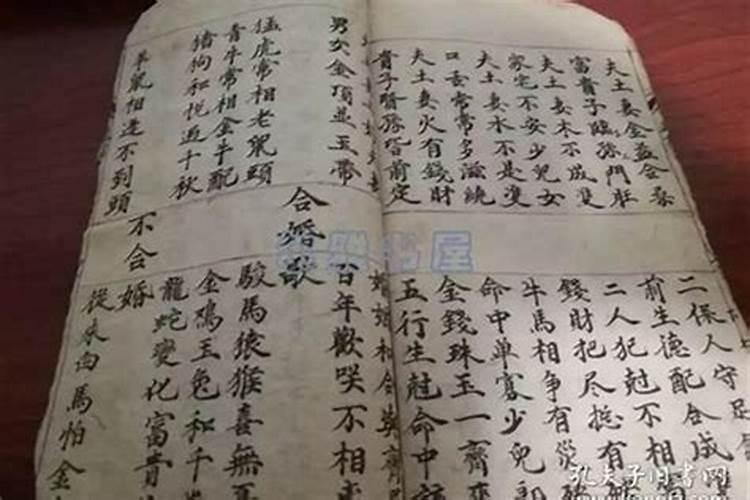 夫土妻金益合
富貴子臨孫門
夫土妻木不成雙
家宅不安少兒女
夫土妻水不是雙
口舌常常多滋繞
夫土妻火有錢財
貴子賢孫答前定
男女金頂並玉帶
猛虎常相老鼠頭
青牛常相金牛配
猪狗和悦过千秋
羊鼠相逢不到頭
二保人守足
前生德配合成
二人犯尅不相
錢財把尽總有
牛馬相争有災
命中单寡少兒郎
金錢珠玉一齊來
五行生尅命中
婚姻和合
百年歡咲不相
合婚歌
駿馬猿猴喜無
金鸡玉兔和千
龍蛇變化富貴
不合婚
從來白馬怕金
孔夫子旧书网